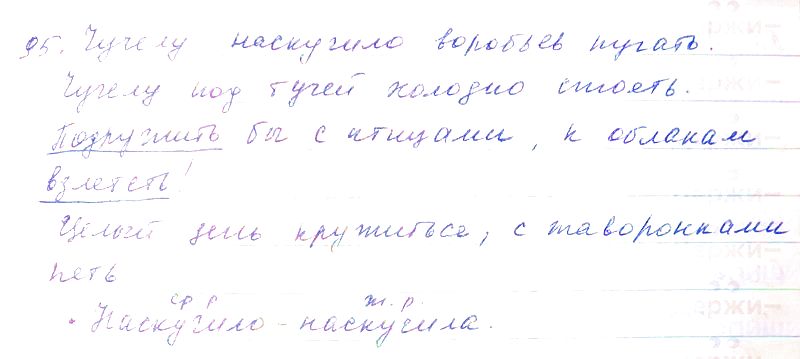 95. Чучелу наскучило воробьев пугать.
Чучелу под тучей холодно стоять.
Подружить бы с птицами, к облакам
взлететь!
Целый день кружиться, с жаворонками
петь
ср р ж. р.
• Наскучило - наскучила.